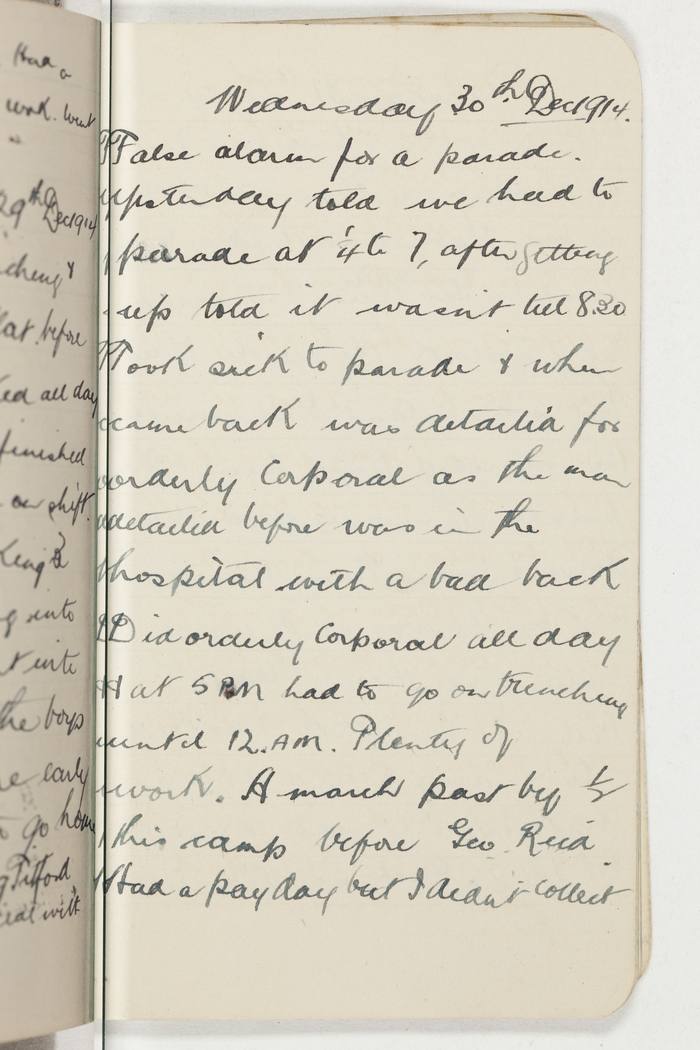 Had a
work. Went
29th Dec 1914
before
all day
finished
on shift.
King's
into
the boys
early
to go home
Wednesday 30th Dec 1914.
False alarm for a parade.
Yesterday told we had to
parade at ¼ to 7, after getting
up told it wasn't till 8.30
Took sick to parade & when
came back was detailed for
orderly Corporal as the man
detailed before was in the
hospital with a bad back
Did orderly Corporal all day
& at 5 PM had to go on trenching
until 12. AM. Plenty of
work. A march past by ½
this camp before Geo Reid.
Had a pay day but I didn't collect